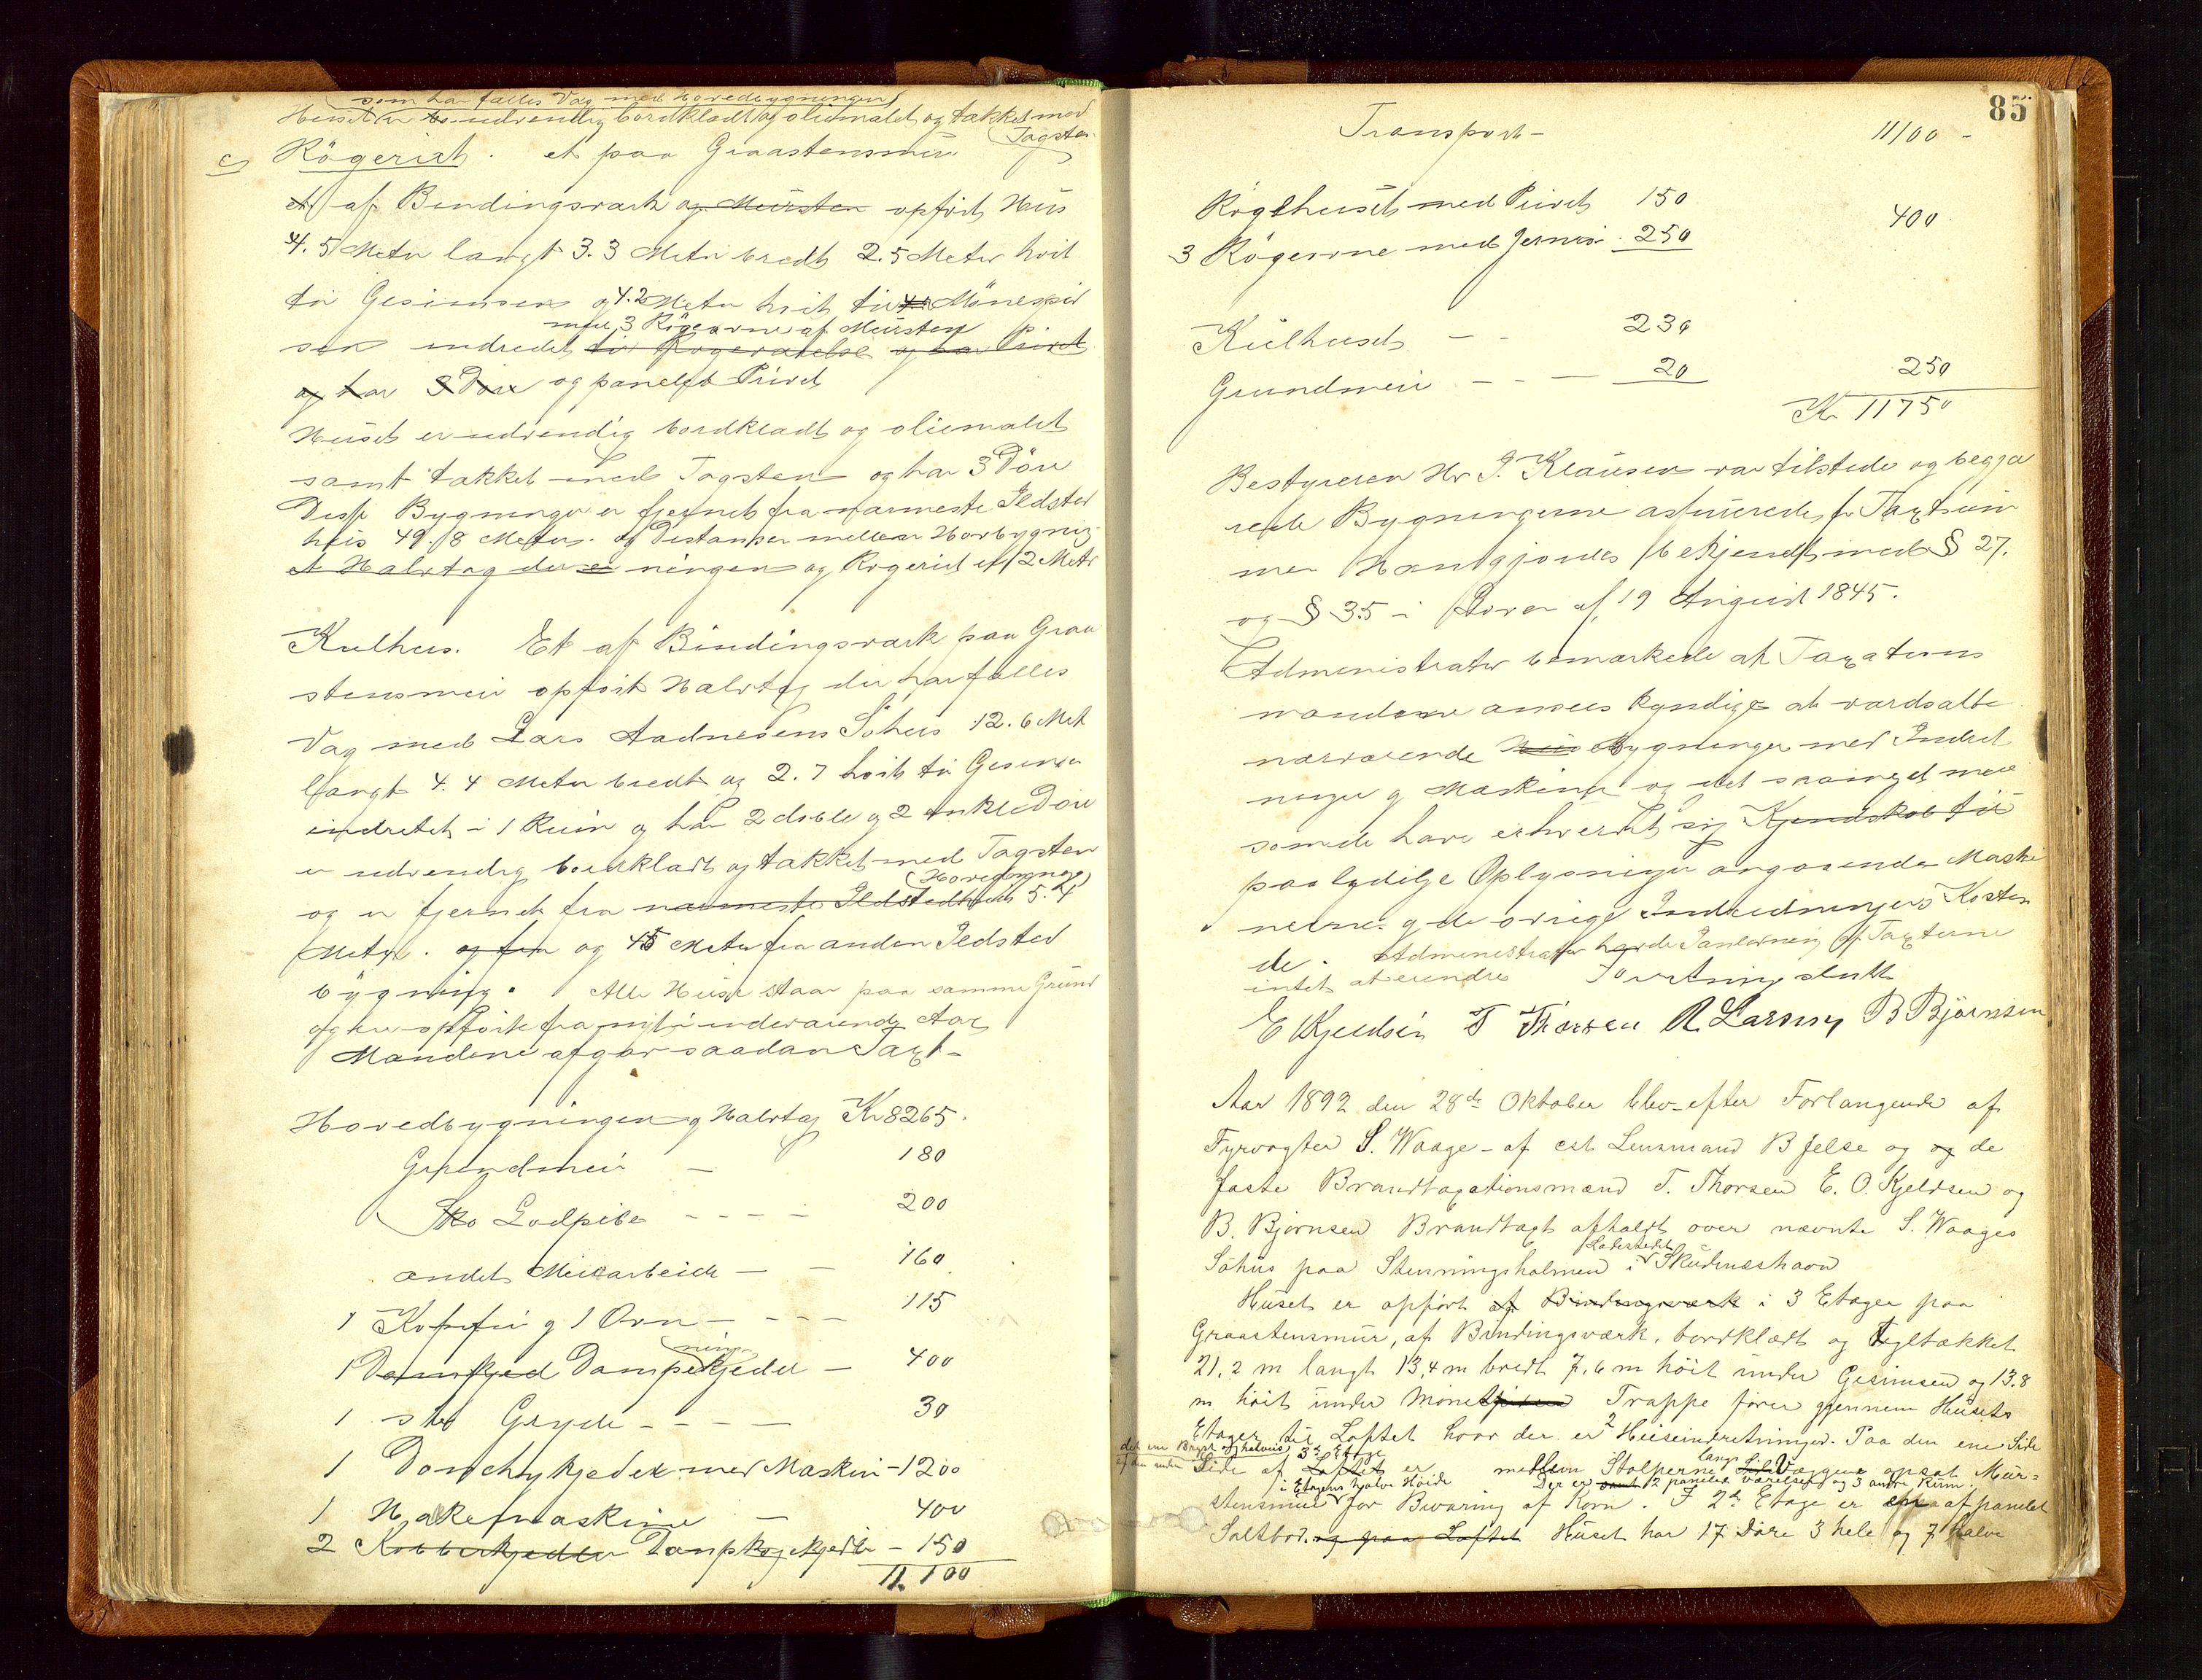 som har fælles Væg med Hovedbygningen
Huset er udvendig bordklædt og oliemalet og tækket med
Tagsten
c) Rögerist. et paa Graastensmur
et af Bindingsværk og Mursten opført Hus
4.5 Meter langt 3.3 Meter bredt 2.5 Meter høit
til Gesimsen og 4.2 Meter høit til Mönespid
med 3 Rögeovne af Mursten
sen indredet til Rogeværelse og har Privet
og har 3 Döre og panelet Privet
Huset er udvendig bordklædt og oliemalet
samt tækket med Tagsten og har 3 Döre
Disse Bygninger er fjernet fra nærmeste Ildsted
hus 49.8 Meter. og Distansen mellem Hovbygnig
et Halvtag der er ningen og Rogerist er 12 Metr
Kulhus. Et af Bindingsværk paa Graa
stensmur opført Halvtag der har fælles
Væg med Lars Aadnesens Söhus 12.6 Met
langt 4.4 Meter bredt og 2.7 høit til Gesimse
indretet i 1 Rum og har 2 doble og 2 enkle Döre
er udvendig bordklædt og tækket med Tagsten
(Hovedbygning)
og er fjernet fra nærmeste Ildstedhus 5.4
Meter. og fra og 45 Meter fra anden Ildsted
bygning. Alle Huse staar paa samme Grund
og ere opførte fra nyt i indeværende Aar
Mændene afgav saadan Taxt-
Hovedbygningen og Halvtag Kr 8265.
Grundmur - 180
Sko Lodpibe - - - - 200
andet Murarbeide - - 160
1 Kofefur og 1 Ovn - - - - 115
1 Dampkjed Dampkjedel - 400
1 stor Gryde - - - - 30
1 Donchykjedel med Maskin - 1200
1 Hakemaskine - 400
2 Kobberkjedler Dampkogekjedler - 150
11.100
85
Transport - 11100 -
Røgehuset med Privet 150
400
3 Rögeovne med Jernrör 250
Kulhuset - - 230
Grundmur - - - 20 250
Kr 11750
Bestyreren Hr J. Klausen var tilstede og begjæ
rede Bygningerne assurerede for Taxtsum
men Han gjordes bekjendt med § 27.
og § 35 i Loven af 19 August 1845.
Administrator bemærkede at Taxations
mændene ansees kyndige at værdsætte
nærværende Hus Bygninger med Indret
ninger og Maskiner og det skjønnet med
somede have erhvervet sig Kjendskab til
paalydelige Oplysninger angaaende Maski
nerne og de øvrige Indredningers Kosten
de. Administrator havde i Anledning af Taxterne
intet at erindre Forretning sluttet
E Kjeldsen T Thorsen R Larsen B Björnsen
Aar 1892 den 28de Oktober blev efter Forlangende af
Fyrvogter S. Waage - af cst Lensmand B Jelse og og de
faste Brandtaxationsmænd T. Thorsen E. O. Kjeldsen og
B. Bjørnsen Brandtaxt afholdt over nævnte S. Waages
Ladestedet
Söhus paa Steiningsholmen i Skudeneshavn
Huset er opført af Bindingsværk i 3 Etager paa
Graastensmur, af Bindingsværk, bordklædt og tegltækket
21,2 m langt 13,4 m bredt 7,6 m høit under Gesimsen og 13.8
m høit under Mönetspidsen Trappe fører gjennem Husets
Etager til Loftet hvor der er 2 Heiseindretninger. Paa den ene Side
3de Etage
Side af Loftet er mellem Stolperne langs Væggene opsat Mur=
i Etagens halve Höide Der er 2 panelede værelser og 3 andre Rum.
stensmur for Bevaring af Korn. I 2de Etage er en af panelet
Saltbod. og paa Loftet Huset har 17 Döre 3 hele og 7 halve